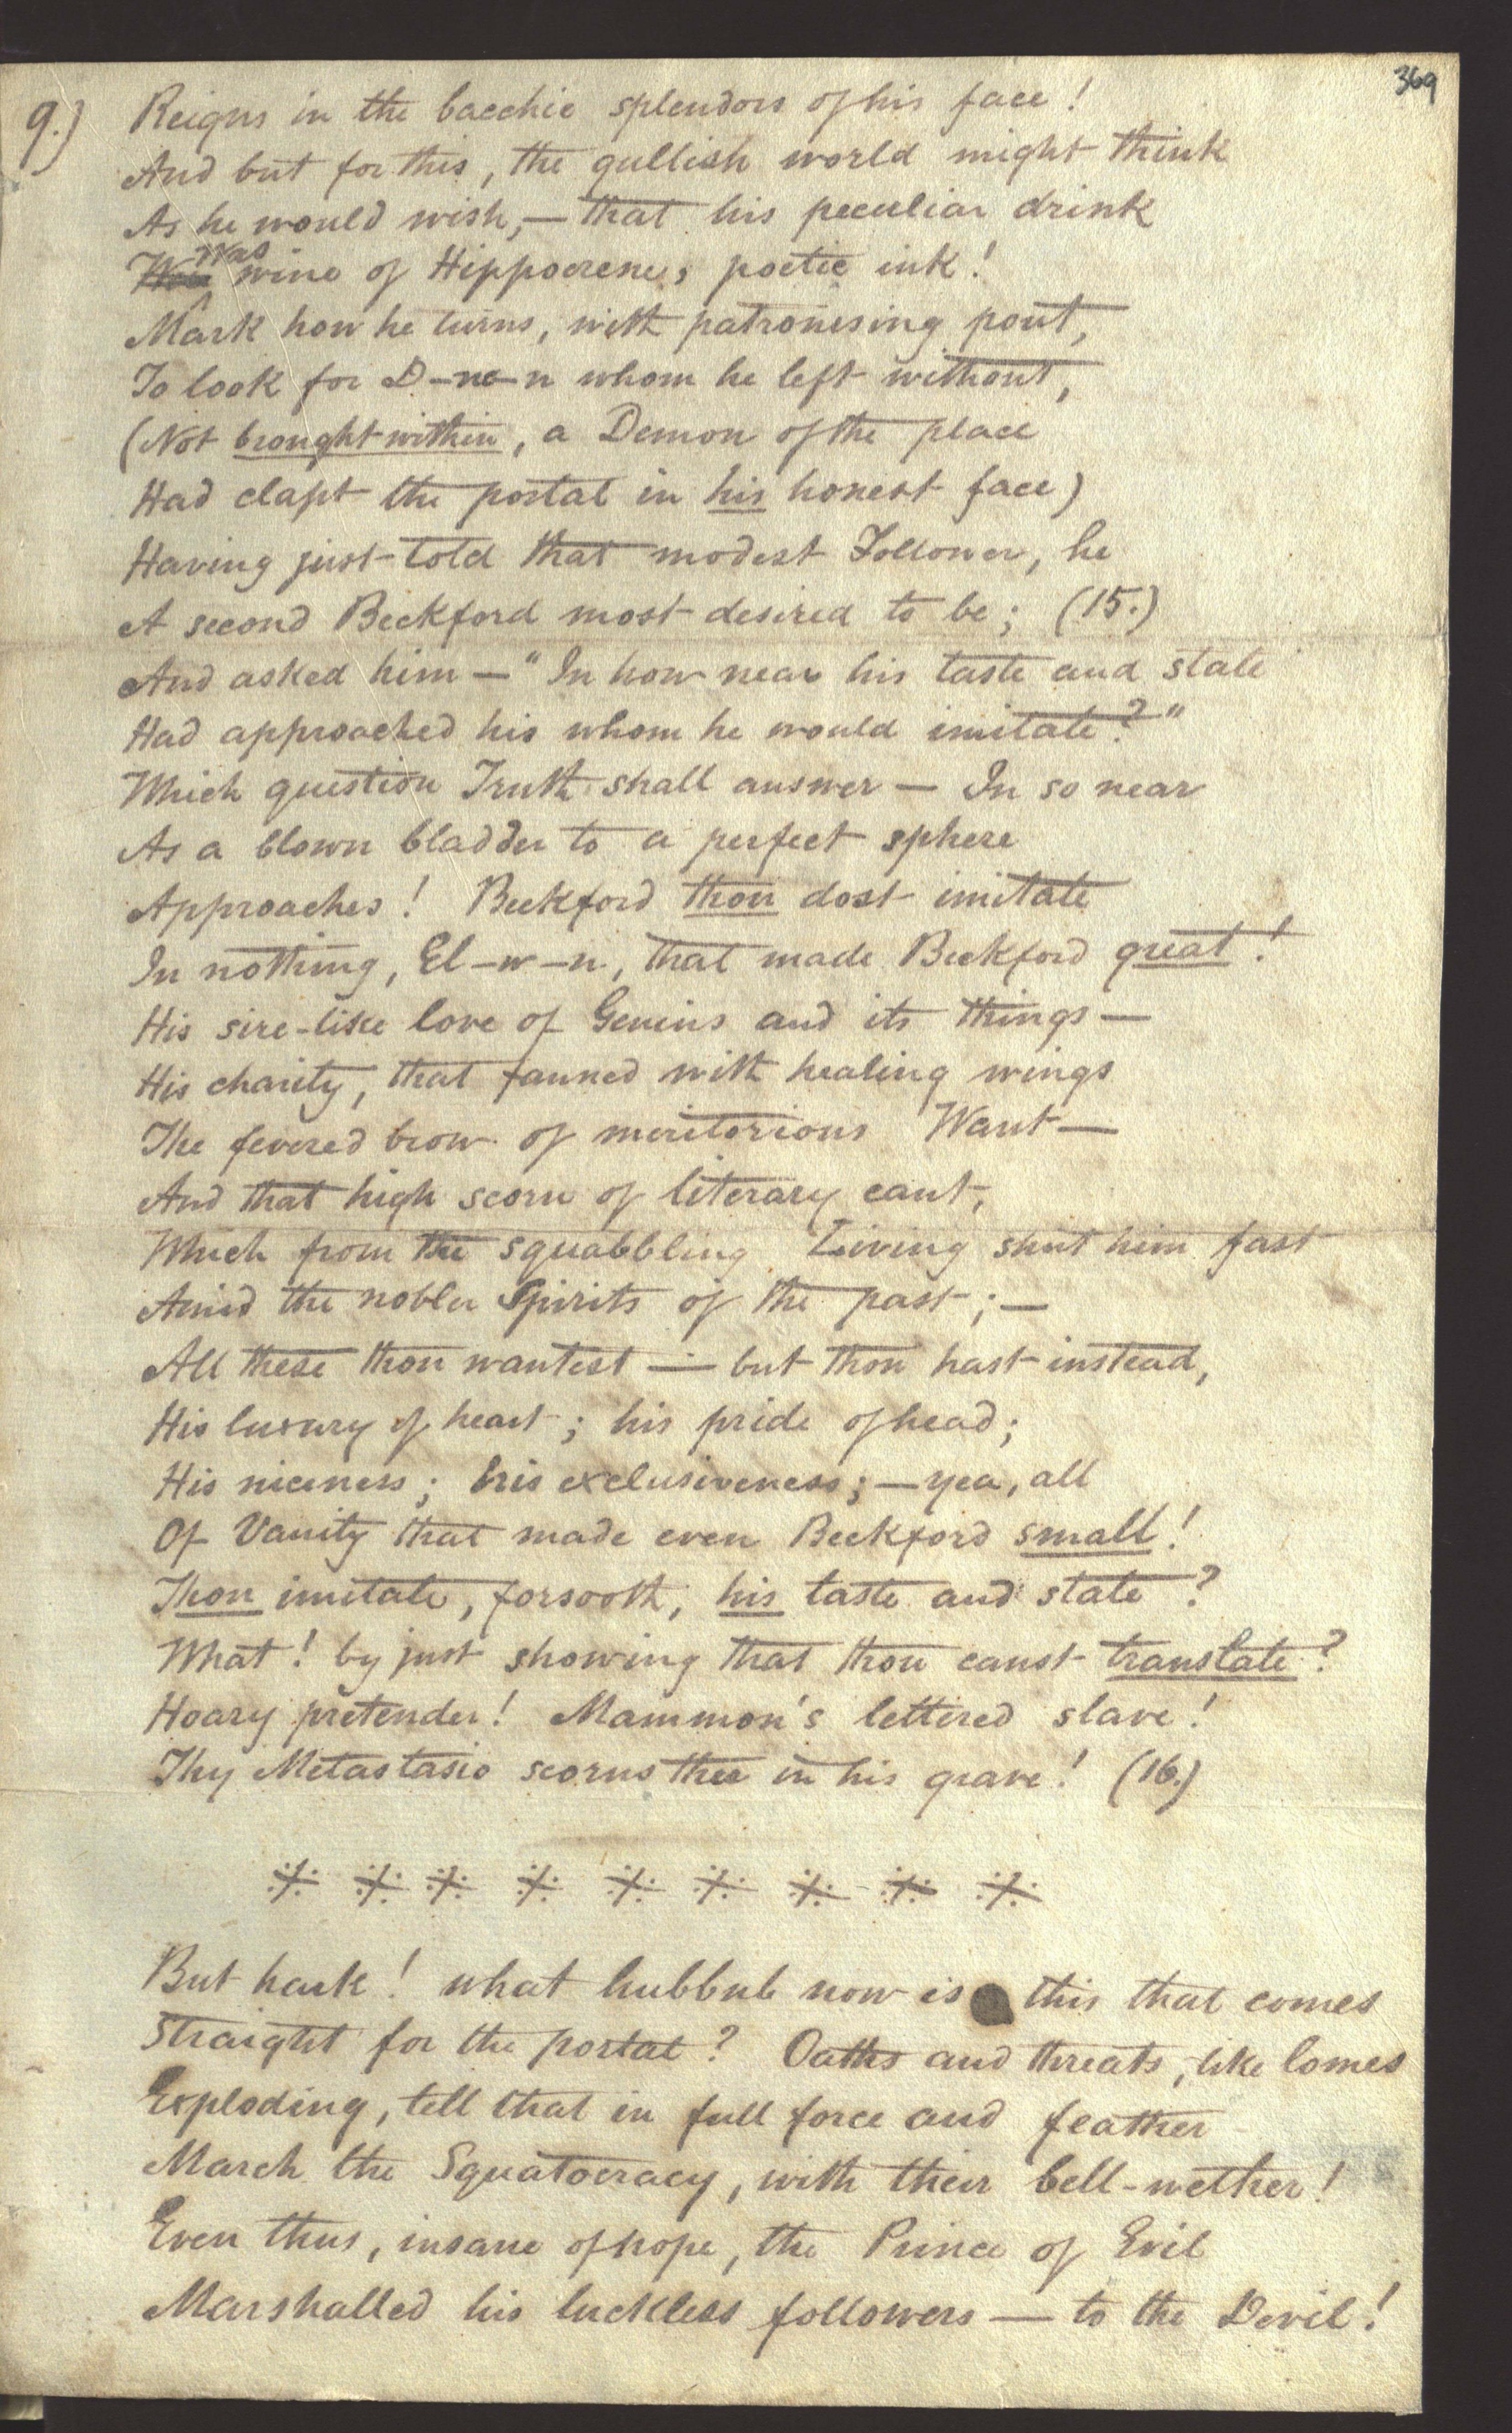 369
9.) Reigns in the bacchic splendors of his face!
And but for this, the gullish world might think
As he would wish, — that his peculiar drink
Was wine of Hippocrene, poetic ink!
Mark how he turns, with patronising pout,
To look for D–n–n whom he left without,
(Not brought within, a Demon of the place
Had clapt the portal in his honest face)
Having just told that modest Follower, he
A second Beckford most desired to be; (15.)
And asked him — "In how near his taste and state
Had approached his whom he would imitate?"
Which question Truth shall answer — In so near
As a blown bladder to a perfect sphere
Approaches! Beckford thou dost imitate
In nothing, El–w–n, that made Beckford great!
His sire-like love of Genius and its things —
His charity, that fanned with healing wings
The fevered brow of meritorious Want —
And that high scorn of literary cant,
Which from the squabbling Living shut him fast
Amid the nobler Spirits of the past; —
All these thou wantest — but thou hast instead,
His luxury of heart; his pride of head;
His niceness; his exclusiveness; — yea, all
Of Vanity that made even Beckford small!
Thou imitate, forsooth, his taste and state?
What! by just showing that thou canst translate?
Hoary pretender! Mammon's lettered slave!
Thy Metastasio scorns thee in his grave! (16.)
※ ※ ※ ※ ※ ※ ※ ※ ※
But hark! what hubbub now is this that comes
Straight for the portal? Oaths and threats, like bomes
Exploding, tell that in full force and feather
March the Squatocracy, with their bell-wether!
Even thus, insane of hope, the Prince of Evil
Marshalled his luckless followers — to the Devil!